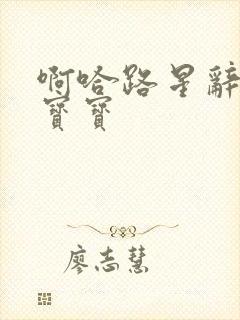 啊哈路星辭
寶寶
廖志慧